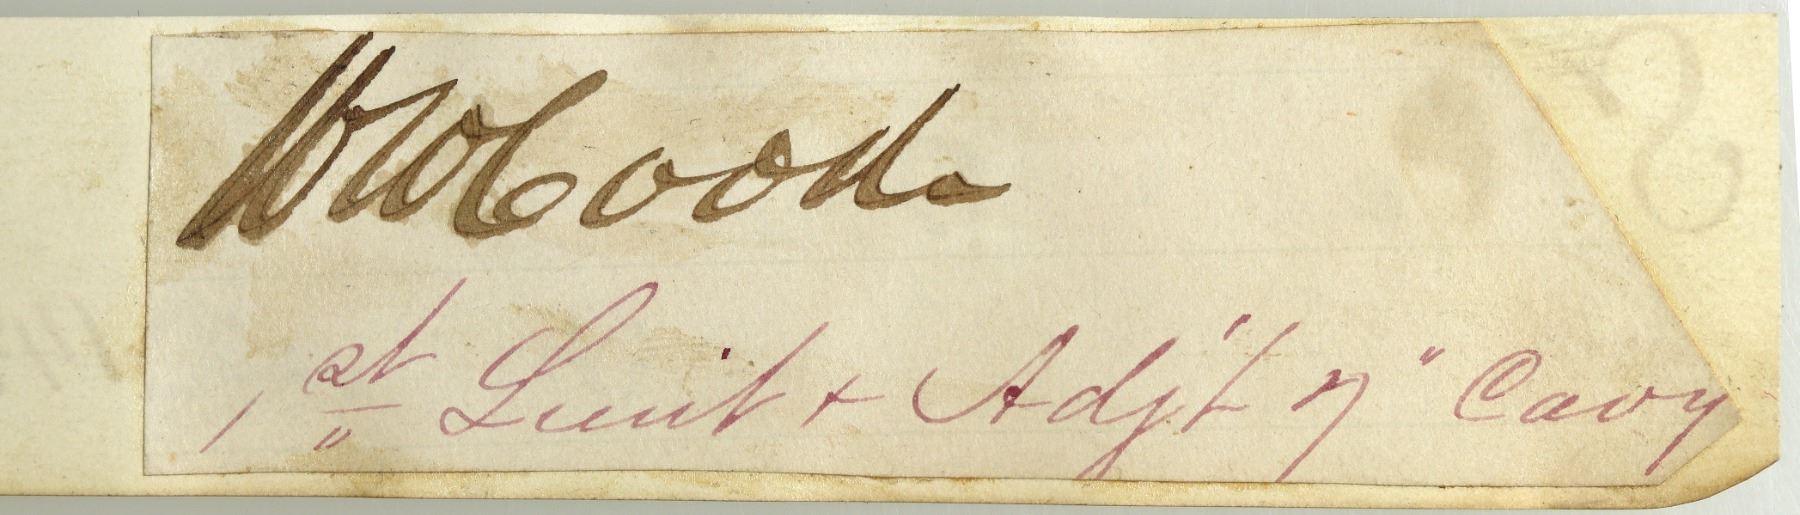 WW Cook
1st Lieut & Adj't 7" Cavy